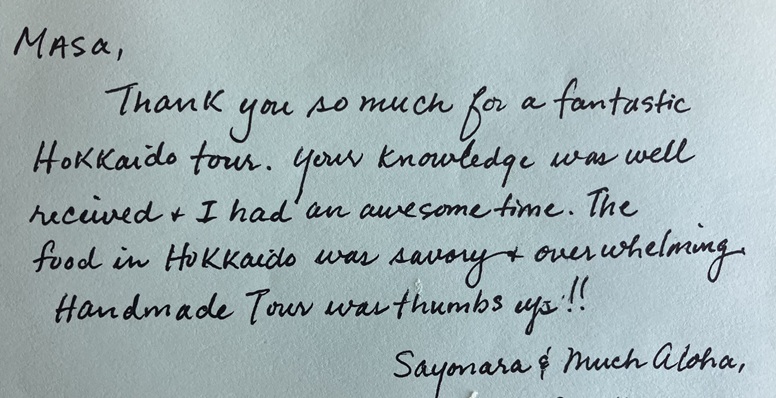 Masa,
Thank you so much for a fantastic
Hokkaido tour. Your knowledge was well
received + I had an awesome time. The
food in Hokkaido was savory + overwhelming.
Handmade Tour was thumbs up!!
Sayonara & Much Aloha,